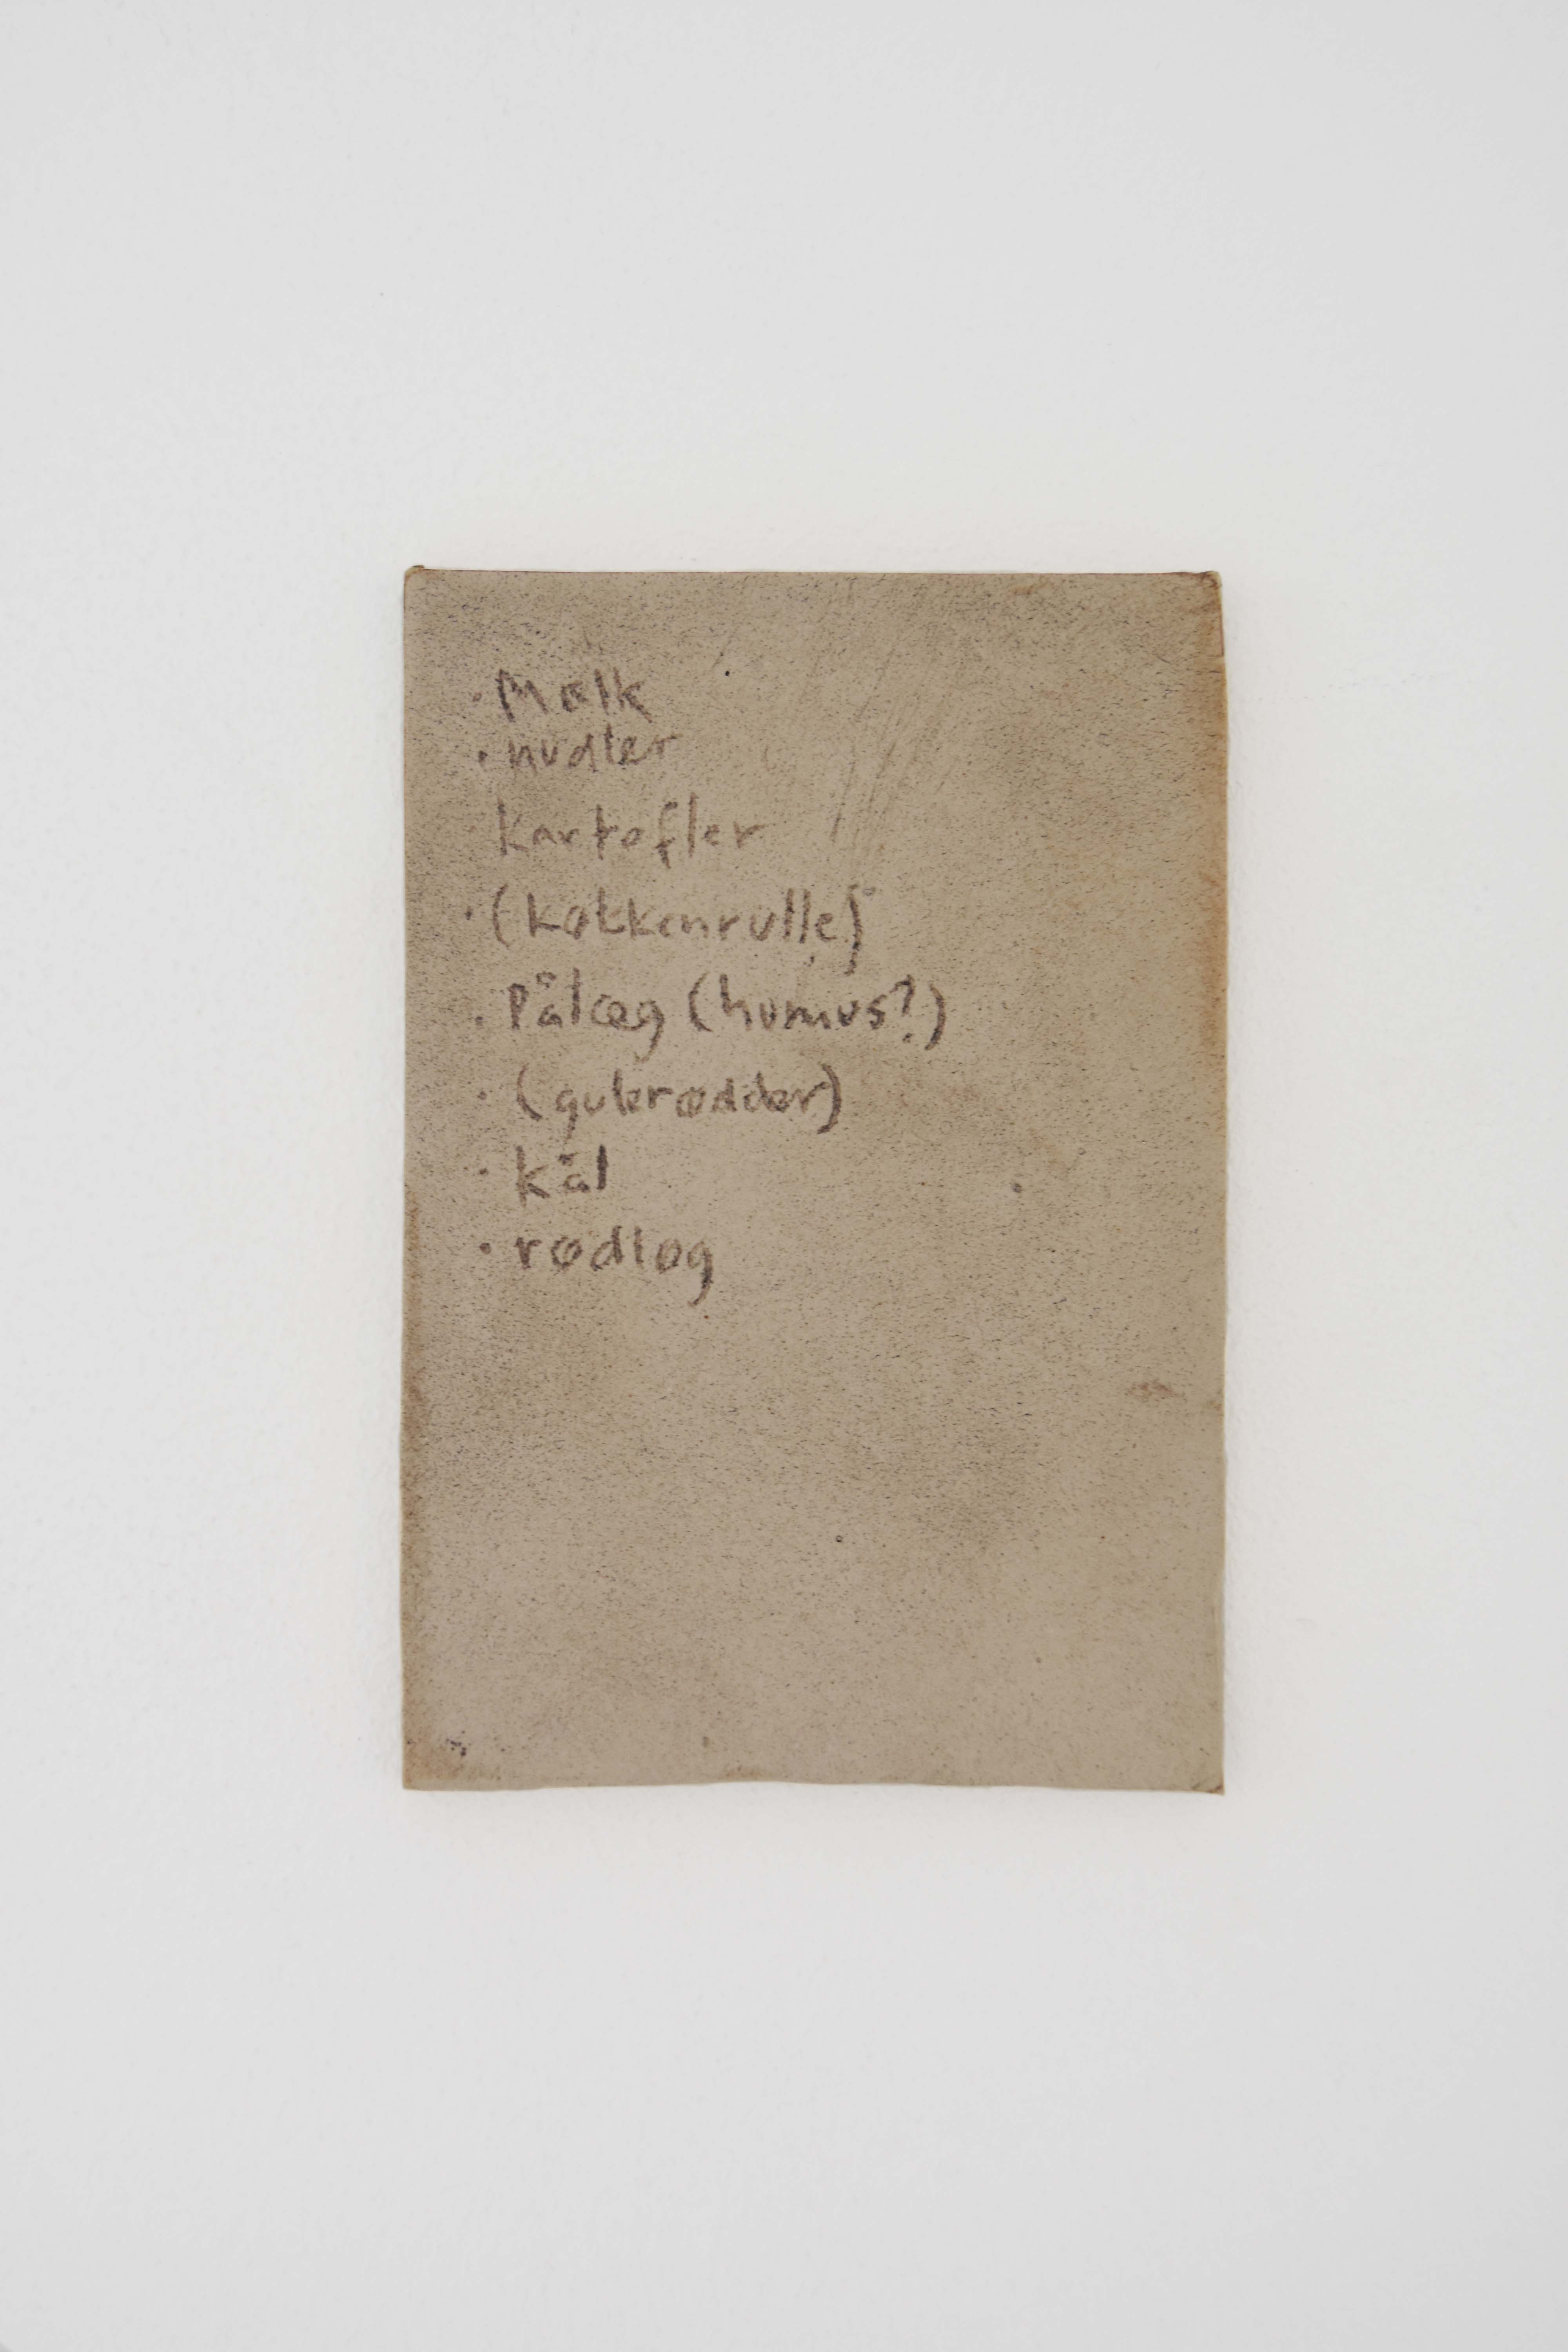 · Mælk
· nudler
kartofler
· (køkkenrulle)
· Pålæg (humus?)
· (gulerødder)
· kål
· rødløg